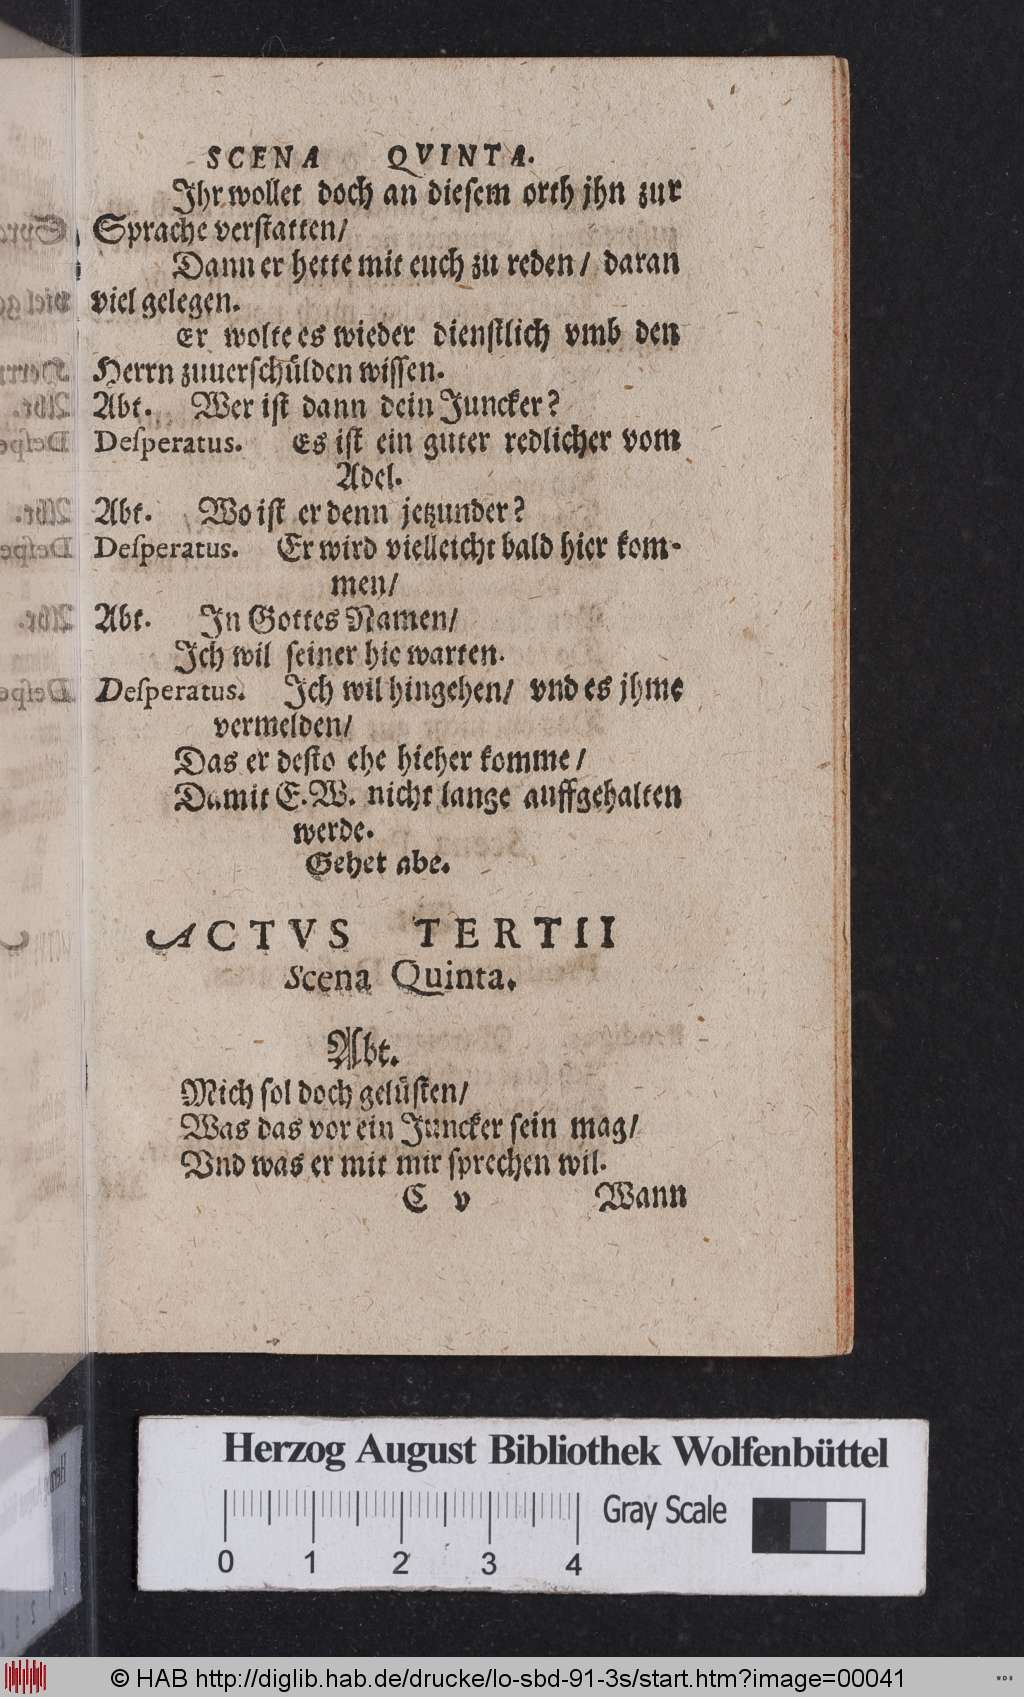 SCENA QVINTA.
Ihr wollet doch an diesem orth jhn zur
Sprache verstatten/
Dann er hette mit euch zu reden/ daran
viel gelegen.
Er wolte es wieder dienstlich vmb den
Herrn zuuerschülden wissen.
Abt. Wer ist dann dein Juncker?
Desperatus. Es ist ein guter redlicher vom
Adel.
Abt. Wo ist er denn jetzunder?
Desperatus. Er wird vielleicht bald hier kom-
men/
Abt. In Gottes Namen/
Ich wil seiner hie warten.
Desperatus. Ich wil hingehen/ vnd es jhme
vermelden/
Das er desto ehe hieher komme/
Damit E. W. nicht lange auffgehalten
werde.
Gehet abe.
ACTVS TERTII
Scena Quinta.
Abt.
Mich sol doch gelüsten/
Was das vor ein Juncker sein mag/
Vnd was er mit mir sprechen wil.
C v Wann
Herzog August Bibliothek Wolfenbüttel
0 1 2 3 4 Gray Scale
© HAB http://diglib.hab.de/drucke/lo-sbd-91-3s/start.htm?image=00041